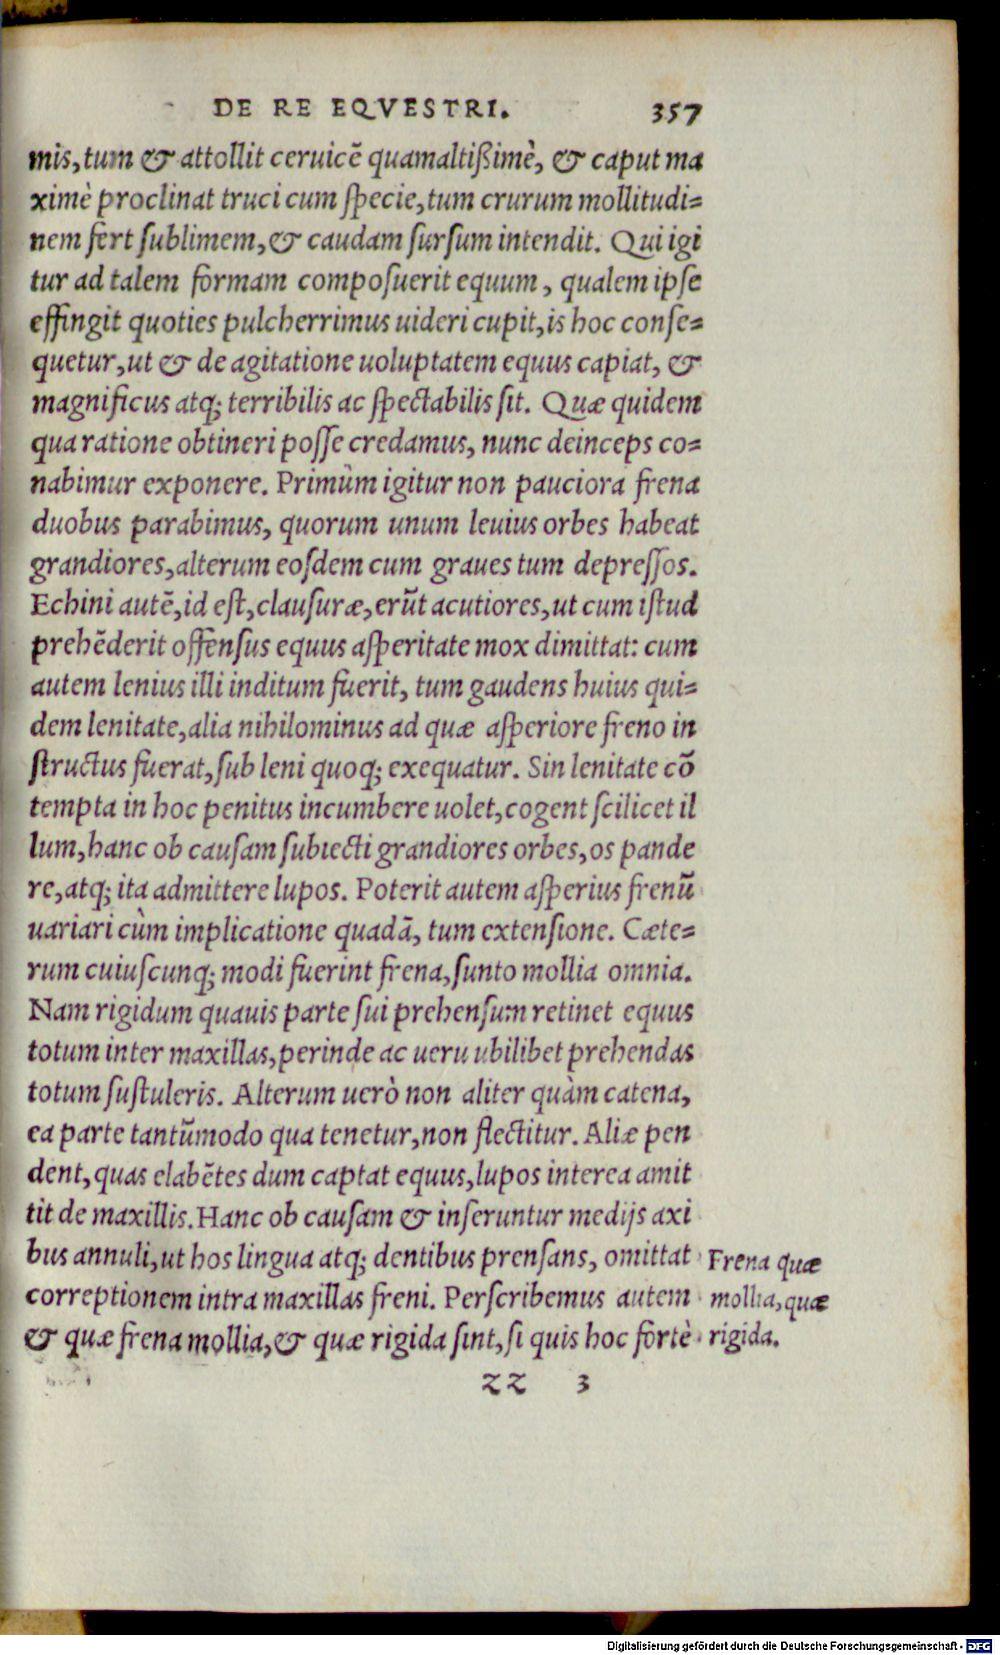 DE RE EQVESTRI. 357
mis, tum & attollit ceruicē quamaltißimè, & caput ma
ximè proclinat truci cum specie, tum crurum mollitudi=
nem fert sublimem, & caudam sursum intendit. Qui igi
tur ad talem formam composuerit equum, qualem ipse
effingit quoties pulcherrimus uideri cupit, is hoc conse=
quetur, ut & de agitatione uoluptatem equus capiat, &
magnificus atq; terribilis ac spectabilis sit. Quæ quidem
qua ratione obtineri posse credamus, nunc deinceps co=
nabimur exponere. Primùm igitur non pauciora frena
duobus parabimus, quorum unum leuius orbes habeat
grandiores, alterum eosdem cum graues tum depressos.
Echini autē, id est, clausuræ, erūt acutiores, ut cum istud
prehēderit offensus equus asperitate mox dimittat: cum
autem lenius illi inditum fuerit, tum gaudens huius qui=
dem lenitate, alia nihilominus ad quæ asperiore freno in
structus fuerat, sub leni quoq; exequatur. Sin lenitate cō
tempta in hoc penitus incumbere uolet, cogent scilicet il
lum, hanc ob causam subiecti grandiores orbes, os pande
re, atq; ita admittere lupos. Poterit autem asperius frenū
uariari cùm implicatione quadā, tum extensione. Cæte=
rum cuiuscunq; modi fuerint frena, sunto mollia omnia.
Nam rigidum quauis parte sui prehensum retinet equus
totum inter maxillas, perinde ac ueru ubilibet prehendas
totum sustuleris. Alterum uerò non aliter quàm catena,
ea parte tantūmodo qua tenetur, non flectitur. Aliæ pen
dent, quas elabētes dum captat equus, lupos interea amit
tit de maxillis. Hanc ob causam & inseruntur medijs axi
bus annuli, ut hos lingua atq; dentibus prensans, omittat
correptionem intra maxillas freni. Perscribemus autem
& quæ frena mollia, & quæ rigida sint, si quis hoc fortè
Frena quæ
mollia, quæ
rigida.
ZZ 3
Digitalisierung gefördert durch die Deutsche Forschungsgemeinschaft - DFG